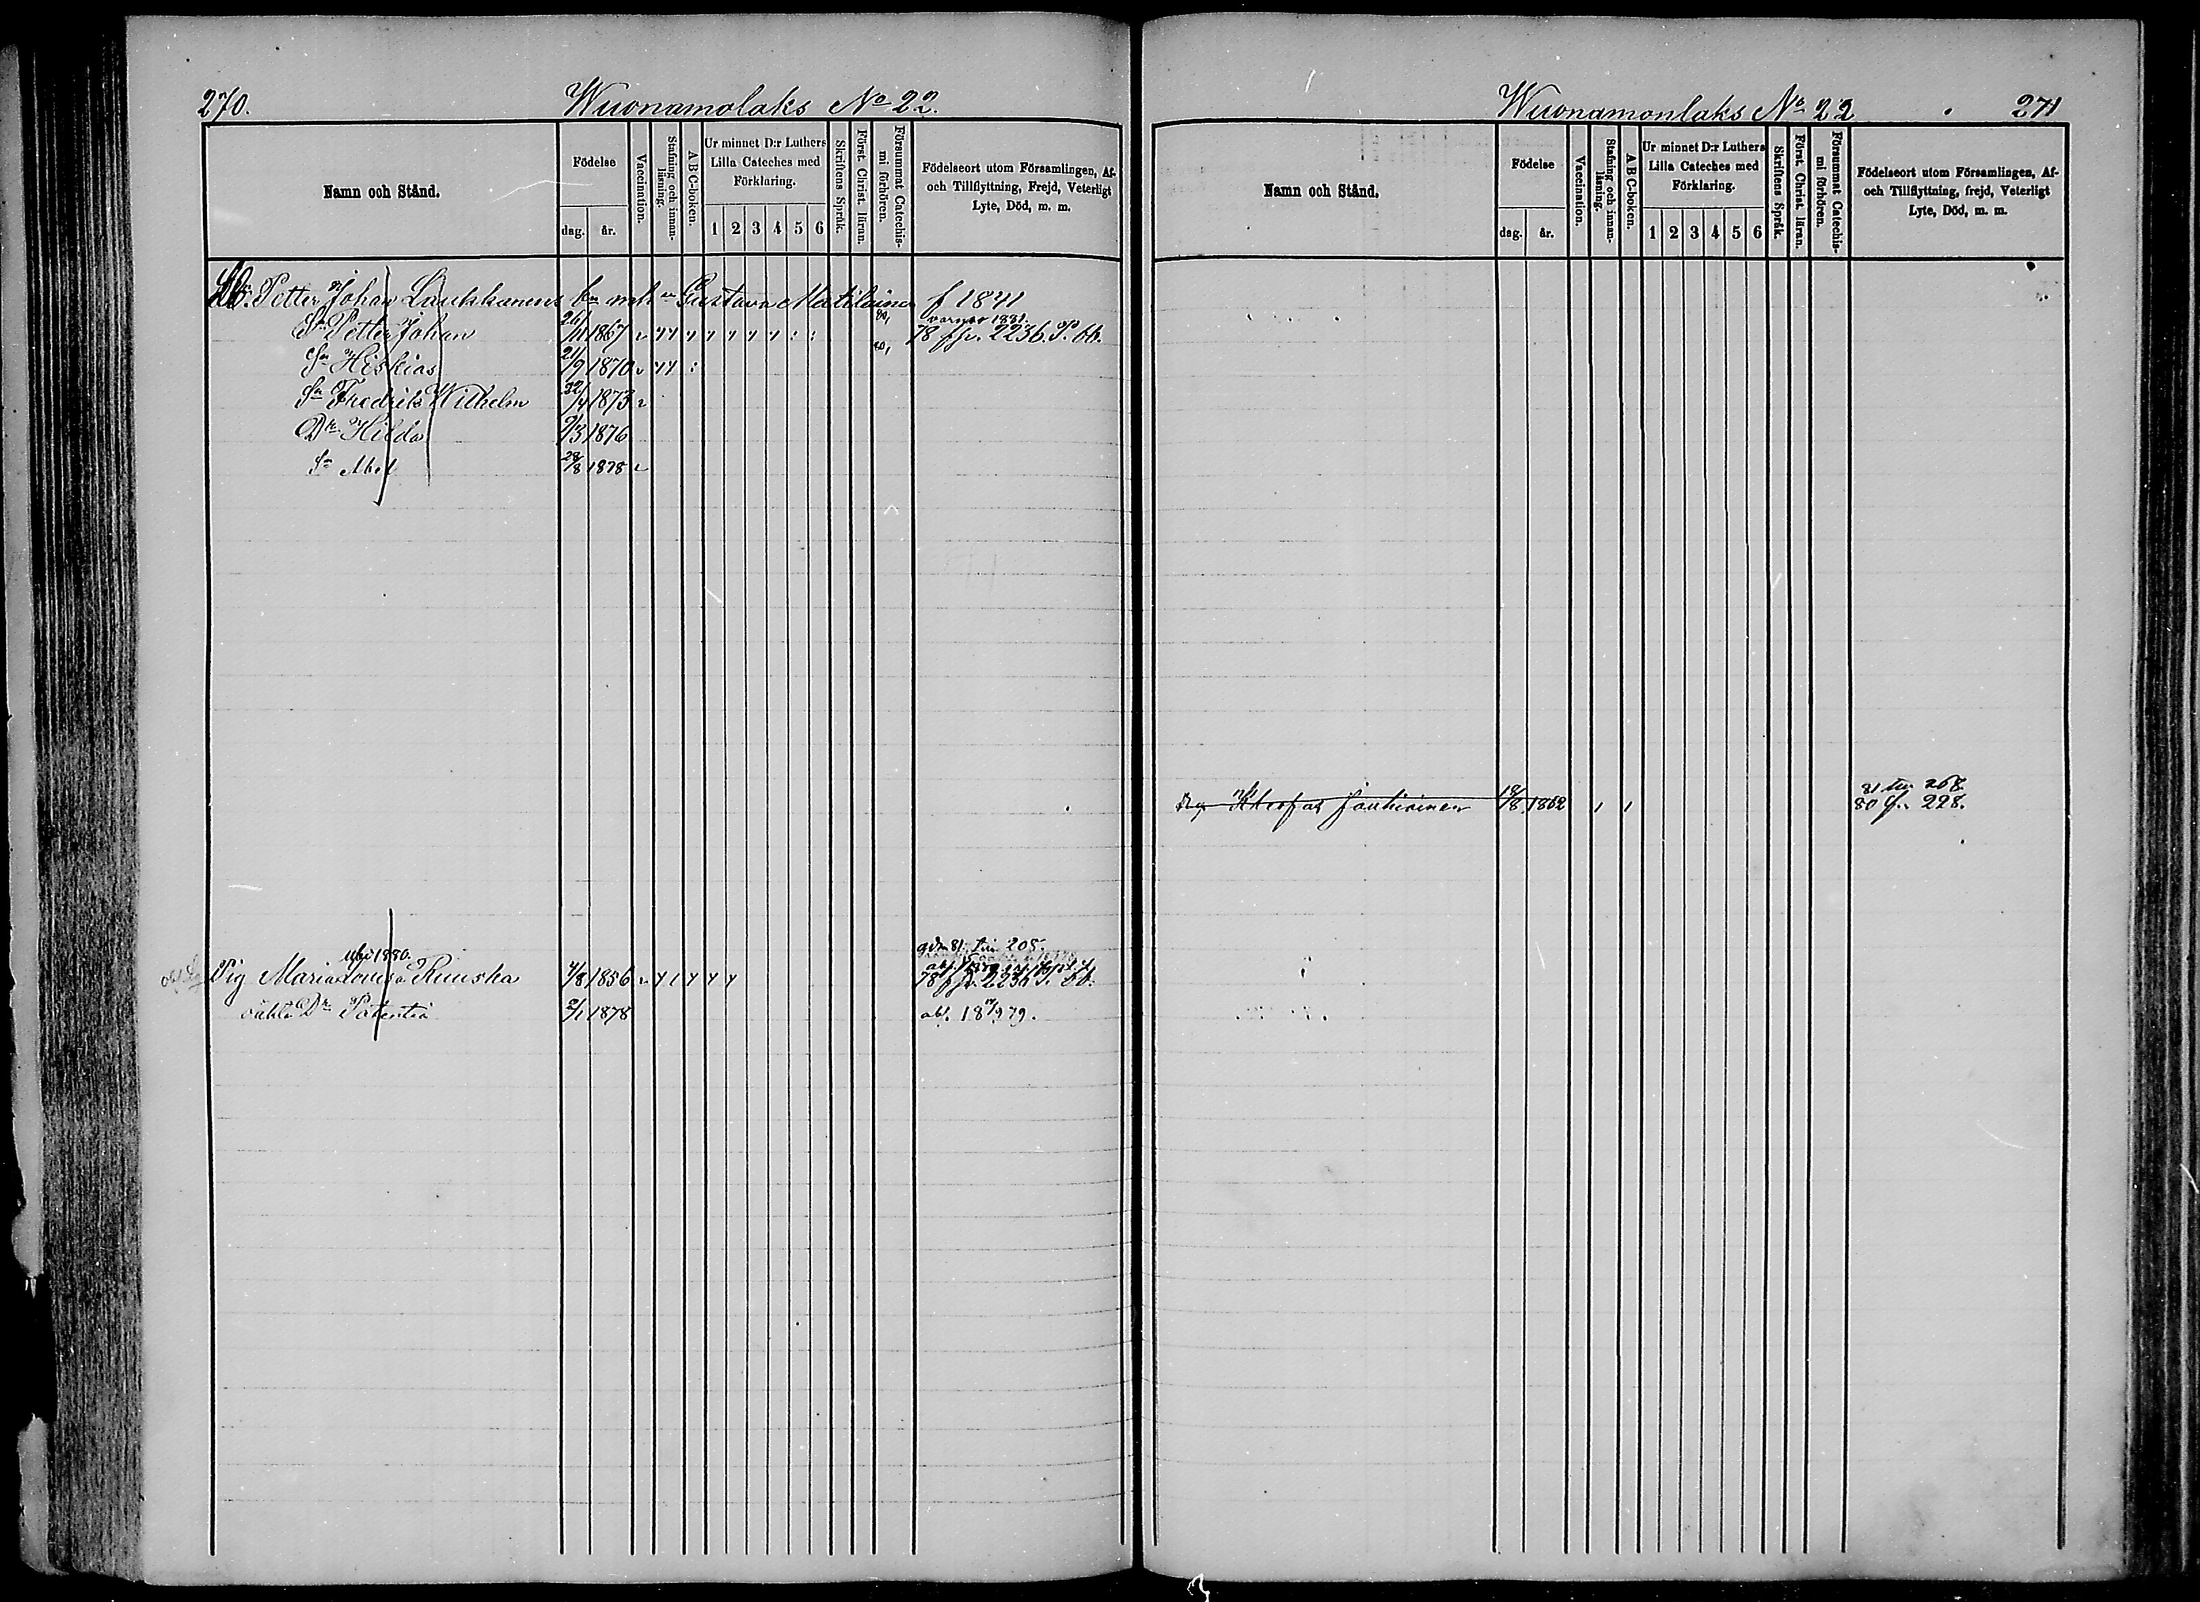 270.
Wuonamolaks No 22.
Namn och Stånd.
Födelse
dag. år.
Vaccination.
Stafning och innan-läsning.
A B C-boken.
Ur minnet D:r Luthers
Lilla Cateches med
Förklaring.
1 2 3 4 5 6
Skriftens Språk.
Först. Christ. läran.
Försummat Catechis-mi förhören.
Födelseort utom Församlingen, Af-
och Tillflyttning, Frejd, Veterligt
Lyte, Död, m. m.
Petter Johan Laukkanens Gustava Matilainen f 1841
Sn Petter Johan 26/11 1867 78 fr. 2236.
Sn Hiskias 21/9 1870
Sn Fredrik Wilhelm 1873
Dr Hilda 1876
Sn Abel 28/8 1878
1880.
gdm 81. 205.
Pig Maria Lovisa Ruuska 4/8 1856 78
oäkta Dr 2/1 1878
Wuonamonlaks No 22
271
Namn och Stånd.
Födelse
dag. år.
Vaccination.
Stafning och innan-läsning.
A B C-boken.
Ur minnet D:r Luthers
Lilla Cateches med
Förklaring.
1 2 3 4 5 6
Skriftens Språk.
Först. Christ. läran.
Försummat Catechis-mi förhören.
Födelseort utom Församlingen, Af-
och Tillflyttning, frejd, Veterligt
Lyte, Död, m. m.
81 268.
Kleofas 18/8 1862 80 fr. 228.